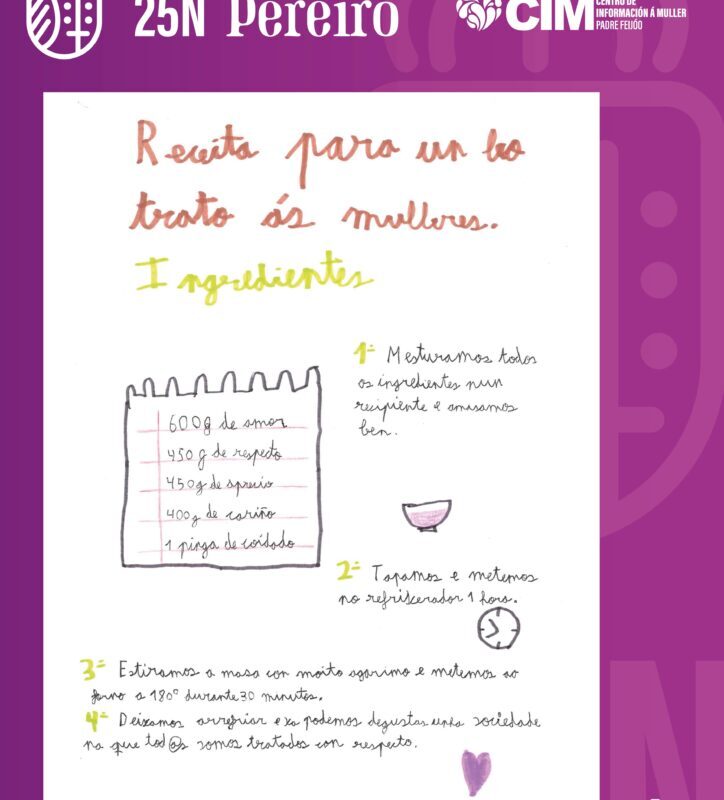 25N Pereiro
CIM
CENTRO DE
INFORMACIÓN Á MULLER
PADRE FEIJÓO
Receita para un bo
trato ás mulleres.
Ingredientes
600g de amor
450 g de respecto
450g de aprecio
400g de cariño
1 pinga de coidado
1º Mesturamos todos
os ingredientes nun
recipiente e amasamos
ben.
2º Tapamos e metemos
no refrixerador 1 hora.
3º Estiramos a masa con moito agarimo e metemos ao
forno a 180º durante 30 minutos.
4º Deixamos arrefriar e xa podemos degustar unha sociedade
na que tod@s somos tratados con respecto.